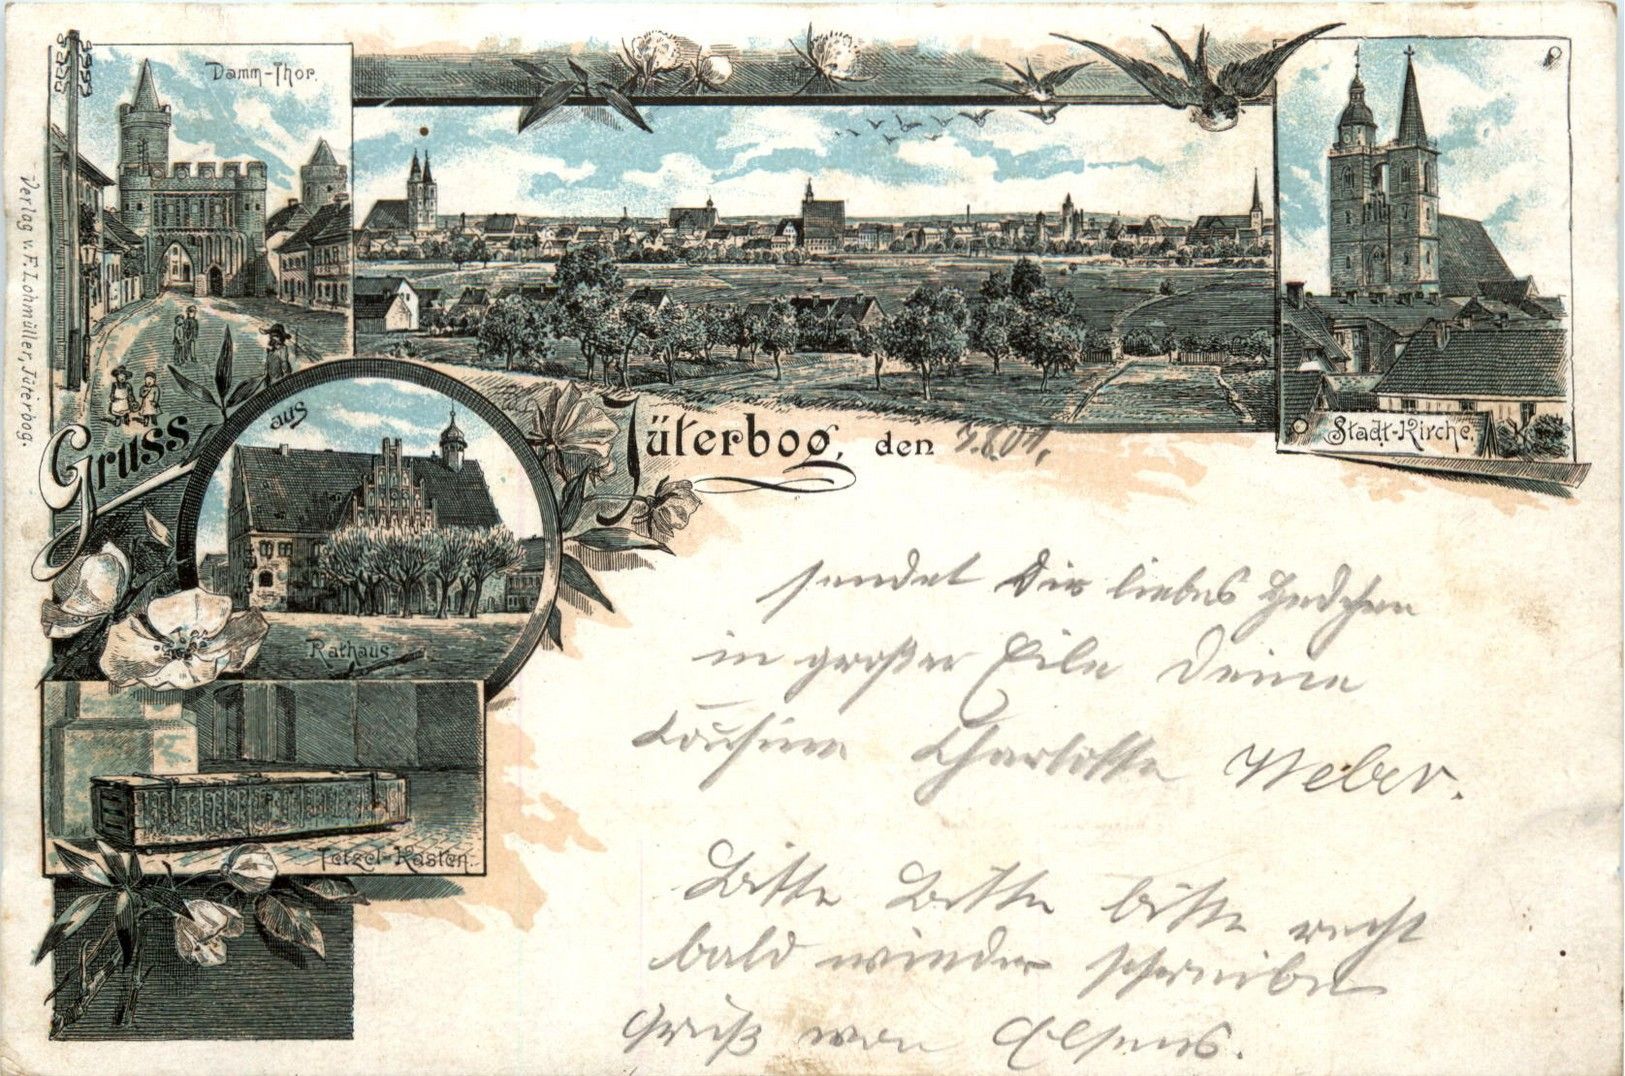 Damm-Thor.
Verlag v. F. Lohmüller, Jüterbog.
Stadt-Kirche.
Gruss aus Jüterbog, den 7.6.01.
Rathaus
Tetzel-Kasten.
sendet Dir liebes
in großer Eile Deine
Cousine Charlotte Weber.
Bitte Bitte bitte recht
bald wieder schreiben
Gruß von